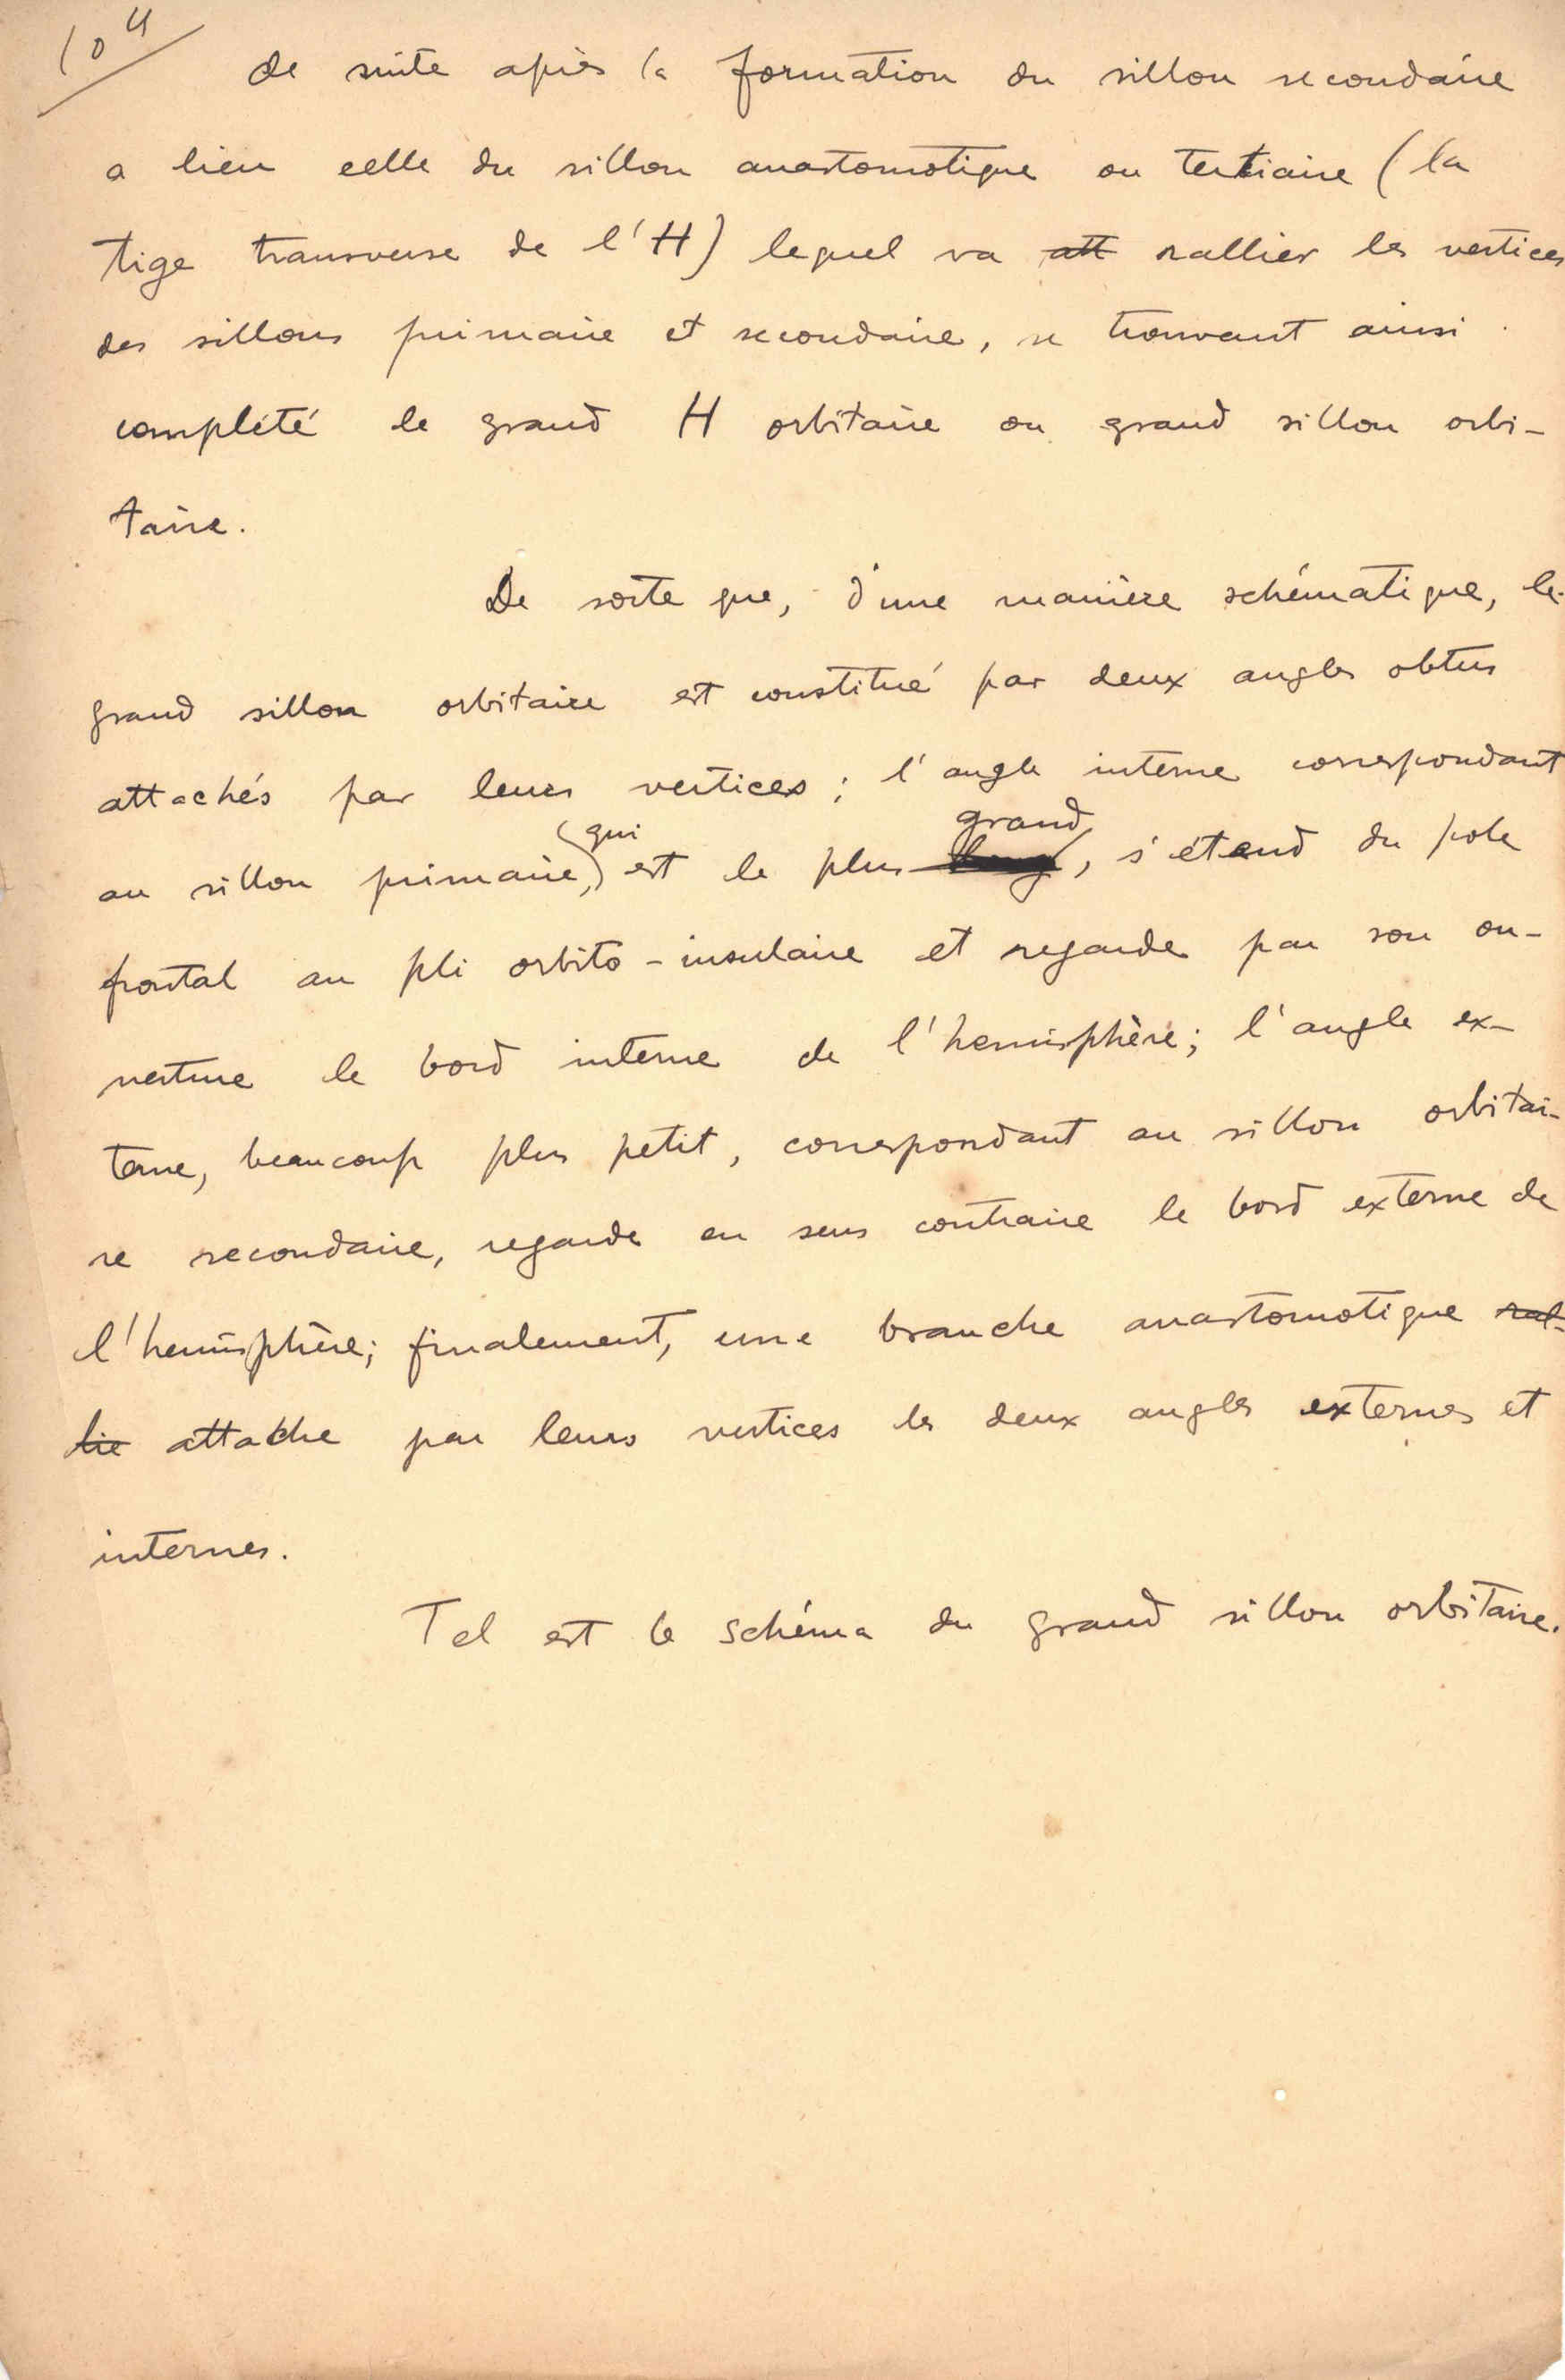 104
de suite après la formation du sillon secondaire
a lieu celle du sillon anastomotique ou tertiaire (la
tige transverse de l'H) lequel va att rallier les vertices
des sillons primaire et secondaire, se trouvant ainsi
complété le grand H orbitaire ou grand sillon orbi-
taire.
De sorte que, d'une manière schématique, le
grand sillon orbitaire est constitué par deux angles obtus
attachés par leurs vertices; l'angle interne correspondant
au sillon primaire, (qui) est le plus long grand, s'étend du pole
frontal au pli orbito-insulaire et regarde par son ou-
verture le bord interne de l'hemisphère; l'angle ex-
terne, beaucoup plus petit, correspondant au sillon orbitai-
re secondaire, regarde en sens contraire le bord externe de
l'hemisphère; finalement, une branche anastomotique ral-
lie attache par leurs vertices les deux angles externes et
internes.
Tel est le schéma du grand sillon orbitaire.